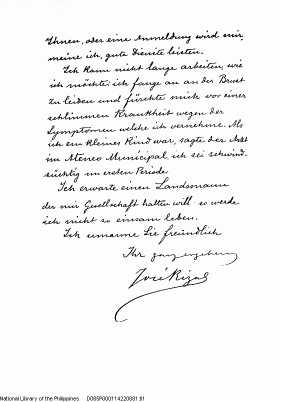 Ihnen, oder eine Anmeldung wird mir,
meine ich, gute Dienste leisten.
Ich kann nicht lange arbeiten, wie
ich möchte; ich fange an an der Brust
zu leiden und fürchte mich vor einer
schlimmen Krankheit wegen der
Symptomen welche ich vernehme. Als
ich ein kleines Kind war, sagte der Arzt
im Ateneo Municipal, ich sei schwind-
süchtig im ersten Periode.
Ich erwarte einen Landsmann
der mir Gesellschaft halten will so werde
ich nicht so einsam leben.
Ich umarme Sie freundlich
Ihr ganz ergebener
José Rizal
National Library of the Philippines D085P000114220881.91